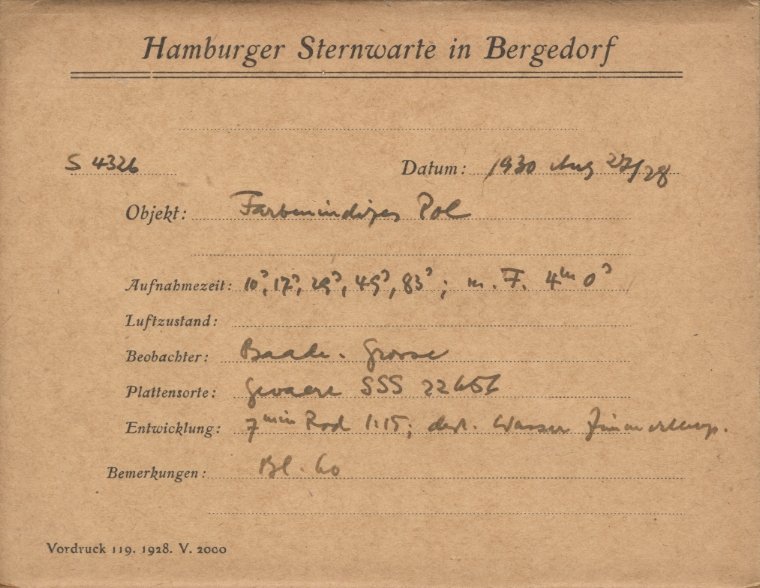 Hamburger Sternwarte in Bergedorf
S 4326 Datum: 1930 Aug 27/28
Objekt: Farbenindizes Pol
Aufnahmezeit: 10ˢ, 17ˢ, 29ˢ, 49ˢ, 83ˢ; m. F. 4ᵐ 0ˢ
Luftzustand:
Beobachter: Baade - Grosse
Plattensorte: Gevaert SSS 22656
Entwicklung: 7ᵐⁱⁿ Rod 1:15; dest. Wasser
Bemerkungen: Bl. 60
Vordruck 119. 1928. V. 2000